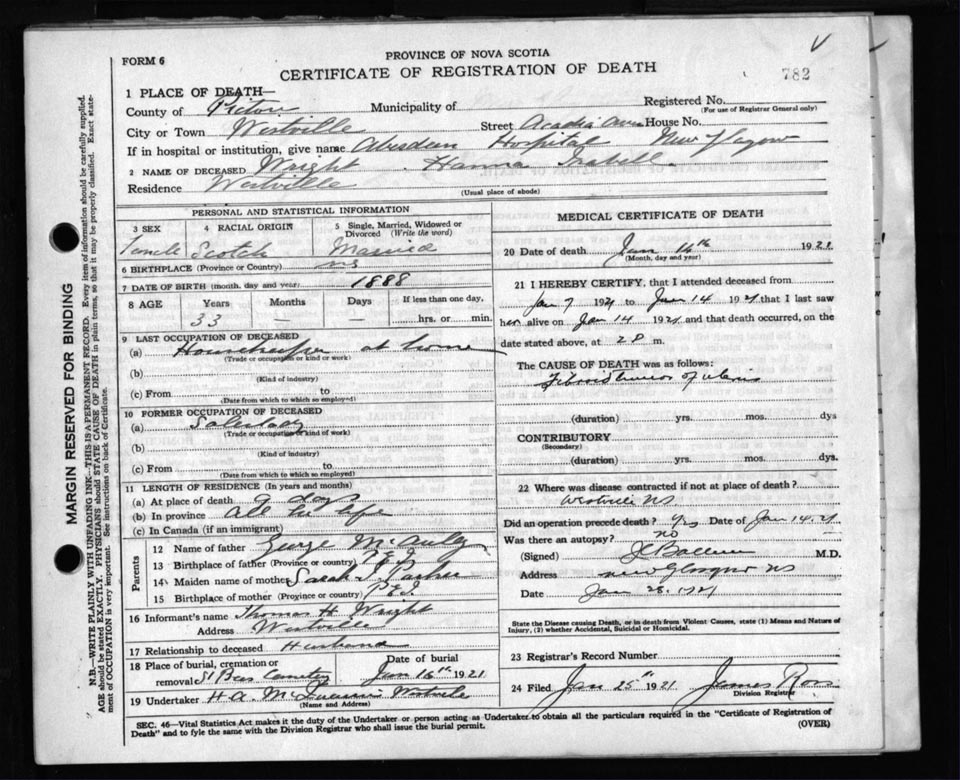 FORM 6
PROVINCE OF NOVA SCOTIA
CERTIFICATE OF REGISTRATION OF DEATH
782
1 PLACE OF DEATH—
County of Pictou Municipality of Registered No.
(For use of Registrar General only)
City or Town Westville Street Acadia Ave House No.
If in hospital or institution, give name Aberdeen Hospital New
2 NAME OF DECEASED Wright Hanna Isabell
Residence Westville
(Usual place of abode)
MARGIN RESERVED FOR BINDING
N.B.—WRITE PLAINLY WITH UNFADING INK—THIS IS A PERMANENT RECORD. Every item of information should be carefully supplied.
AGE should be stated EXACTLY. PHYSICIANS should STATE CAUSE OF DEATH in plain terms, so that it may be properly classified. Exact state-
ment of OCCUPATION is very important. See instructions on back of Certificate.
PERSONAL AND STATISTICAL INFORMATION
3 SEX 4 RACIAL ORIGIN 5 Single, Married, Widowed or
Divorced (Write the word)
Female Scotch Married
6 BIRTHPLACE (Province or Country) NS
7 DATE OF BIRTH (month, day and year) 1888
8 AGE Years Months Days If less than one day,
33 — — hrs. or min.
9 LAST OCCUPATION OF DECEASED
(a) Housekeeper at home
(Trade or occupation or kind of work)
(b)
(Kind of industry)
(c) From to
(Date from which to which so employed)
10 FORMER OCCUPATION OF DECEASED
(a) Saleslady
(Trade or occupation or kind of work)
(b)
(Kind of industry)
(c) From to
(Date from which to which so employed)
11 LENGTH OF RESIDENCE (In years and months)
(a) At place of death 9 days
(b) In province All her life
(c) In Canada (if an immigrant)
Parents
12 Name of father George McAuley
13 Birthplace of father (Province or country) P.E.I.
14 Maiden name of mother Sarah
15 Birthplace of mother (Province or country) P.E.I.
16 Informant's name Thomas H Wright
Address Westville
17 Relationship to deceased Husband
18 Place of burial, cremation or Date of burial
removal St Bees Cemetery Jan 16th 1921
19 Undertaker H. A. Westville
(Name and Address)
MEDICAL CERTIFICATE OF DEATH
20 Date of death Jan 14th 1921
(Month, day and year)
21 I HEREBY CERTIFY, that I attended deceased from
Jan 7 1921 to Jan 14 1921 that I last saw
her alive on Jan 14 1921 and that death occurred, on the
date stated above, at 2 P m.
The CAUSE OF DEATH was as follows:
Fibroid tumor of uterus
(duration) yrs. mos. dys
CONTRIBUTORY
(Secondary)
(duration) yrs. mos. dys.
22 Where was disease contracted if not at place of death?
Westville NS
Did an operation precede death? Yes Date of Jan 14.21
Was there an autopsy? no
(Signed) M.D.
Address New Glasgow NS
Date Jan 28. 1921
State the Disease causing Death, or in death from Violent Causes, state (1) Means and Nature of
Injury, (2) whether Accidental, Suicidal or Homicidal.
23 Registrar's Record Number
24 Filed Jan 25th 1921 James Ross
Division Registrar
SEC. 46—Vital Statistics Act makes it the duty of the Undertaker or person acting as Undertaker to obtain all the particulars required in the "Certificate of Registration of
Death" and to fyle the same with the Division Registrar who shall issue the burial permit. (OVER)